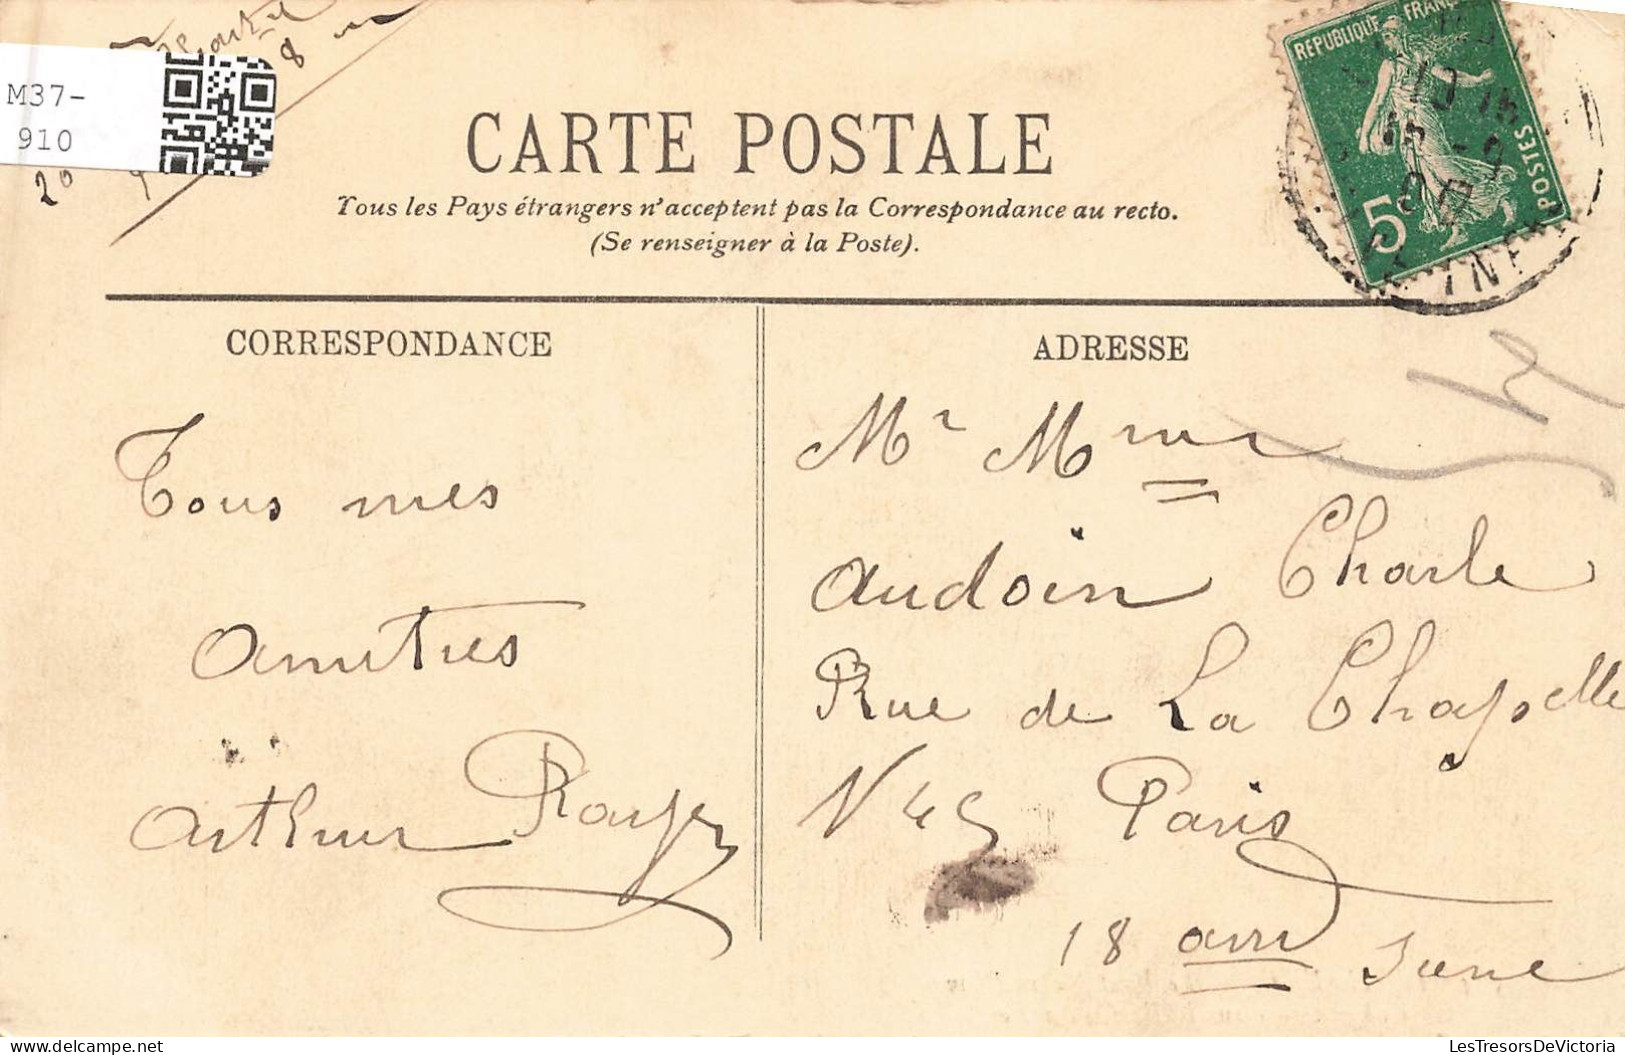 M37-
910
20
8
CARTE POSTALE
Tous les Pays étrangers n'acceptent pas la Correspondance au recto.
(Se renseigner à la Poste).
REPUBLIQUE FRANÇ
POSTES
5c
CORRESPONDANCE
Tous mes
amitres
Arthur
ADRESSE
Mr Mme
Audoin Charle
Rue de La Chapelle
N 45 Paris
18 arr Sene
LesTresorsDeVictoria
delcampe.net